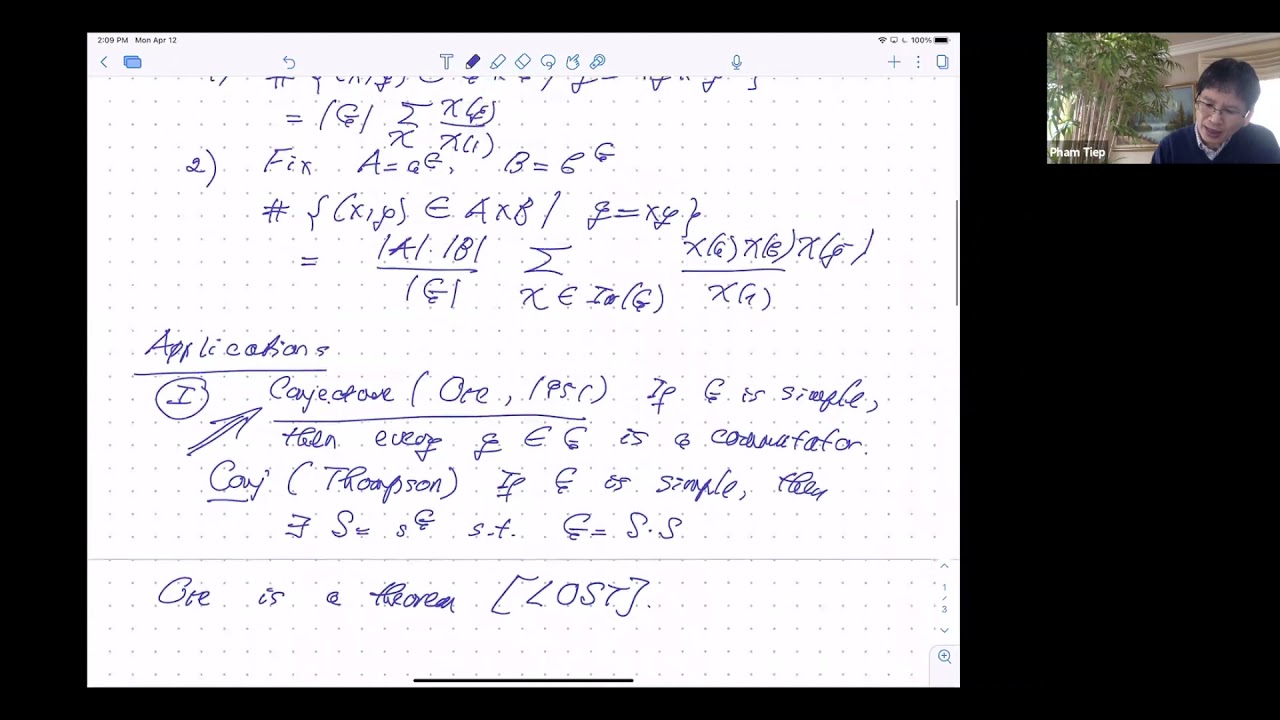 2:09 PM Mon Apr 12
100%
= |G| Σ_χ χ(g)/χ(1)
2) Fix A = a^G, B = b^G
# {(x,y) ∈ A×B | g = xy}
= |A|·|B| / |G| Σ_{χ ∈ Irr(G)} χ(a) χ(b) χ(g) / χ(1)
Applications
I Conjecture (Ore, 1951) If G is simple,
then every g ∈ G is a commutator.
Conj (Thompson) If G is simple, then
∃ S = s^G s.t. G = S·S
Ore is a theorem [LOST].
1
/
3
Pham Tiep